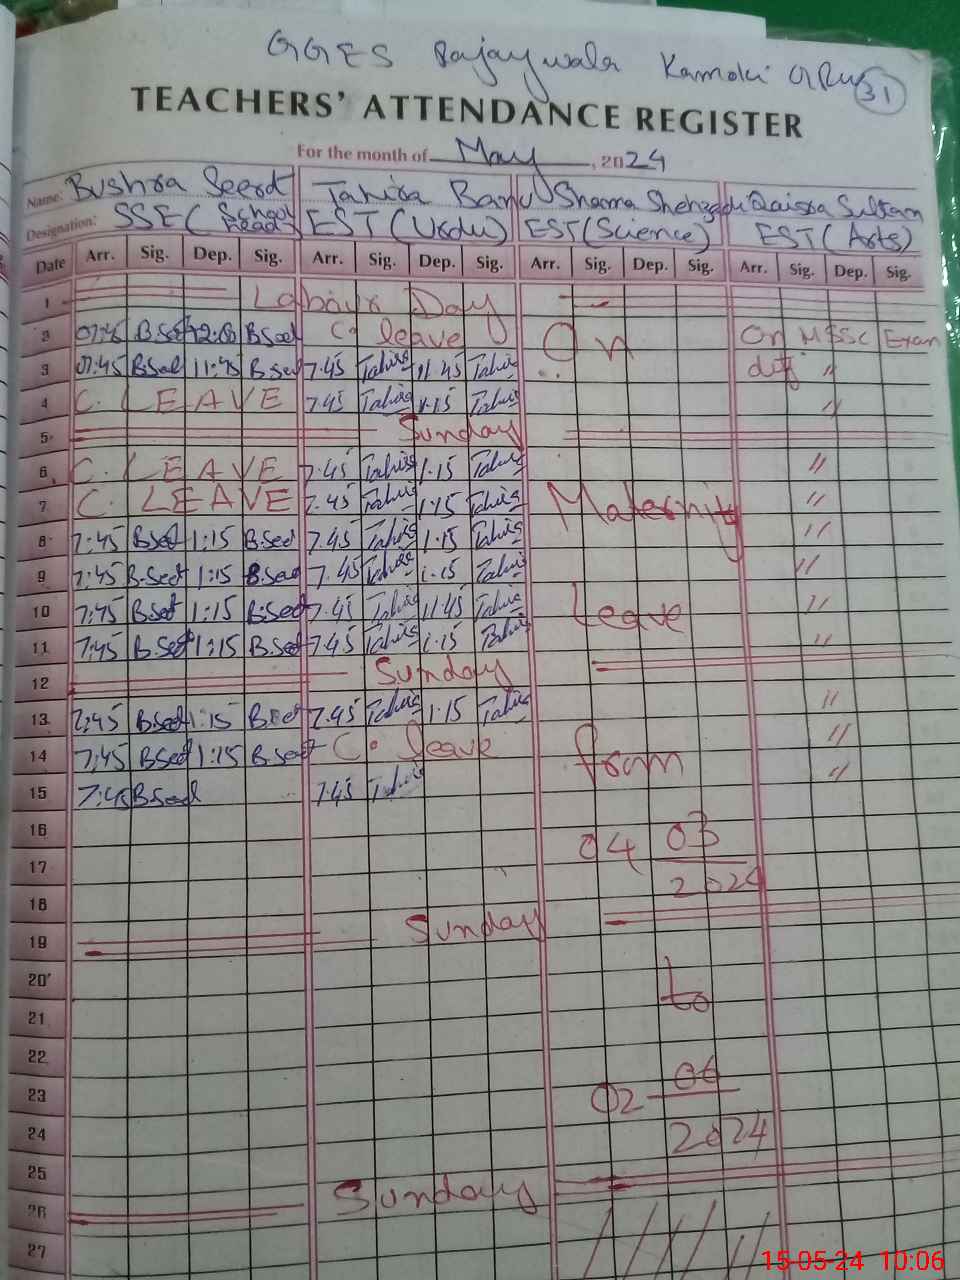 GGES Rajaywala Kamoki GRW 31
TEACHERS' ATTENDANCE REGISTER
For the month of May, 2024
Name: Bushra Seerat Tahira Banu Shama Shehzadi Qaisra Sultan
Designation: SSE (School Head) EST (Urdu) EST (Science) EST (Arts)
Date Arr. Sig. Dep. Sig. Arr. Sig. Dep. Sig. Arr. Sig. Dep. Sig. Arr. Sig. Dep. Sig.
1 Labour Day
2 07:45 12:00 C. leave On On Exam
3 07:45 11:45 7.45 Tahira 11.45 Tahira "
4 C. LEAVE 7.45 Tahira 1.15 Tahira "
5 Sunday
6 C. LEAVE 7.45 Tahira 1.15 Tahira "
7 C. LEAVE 7.45 Tahira 1.15 Tahira Maternity "
8 7:45 1:15 7.45 Tahira 1.15 Tahira "
9 7:45 1:15 7.45 Tahira 1.15 Tahira "
10 7:45 1:15 7.45 Tahira 11.45 Tahira Leave "
11 7:45 1:15 7.45 Tahira 1.15 Tahira "
12 Sunday
13 7:45 1:15 7.45 Tahira 1.15 Tahira "
14 7:45 1:15 C. leave from "
15 7:45 7.45 Tahira "
16 04 03
17 2024
18
19 Sunday
20 to
21
22
23 02 06
24 2024
25
26 Sunday
27
15-05-24 10:06